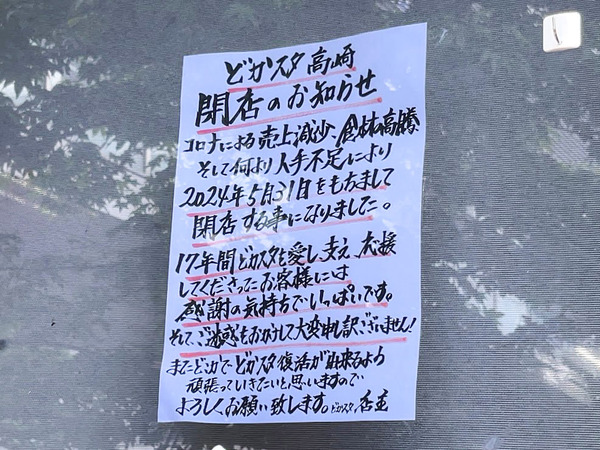 どカスタ高崎
閉店のお知らせ
コロナによる売上減少、食材高騰、
そして何より人手不足により
2024年5月31日をもちまして
閉店する事になりました。
17年間どカスタを愛し、支え、応援
してくださったお客様には
感謝の気持ちでいっぱいです。
そして、ご迷惑をおかけして大変申し訳ございません!
またどこかでどカスタ復活が出来るよう
頑張っていきたいと思いますので
よろしくお願い致します。どカスタ 店主